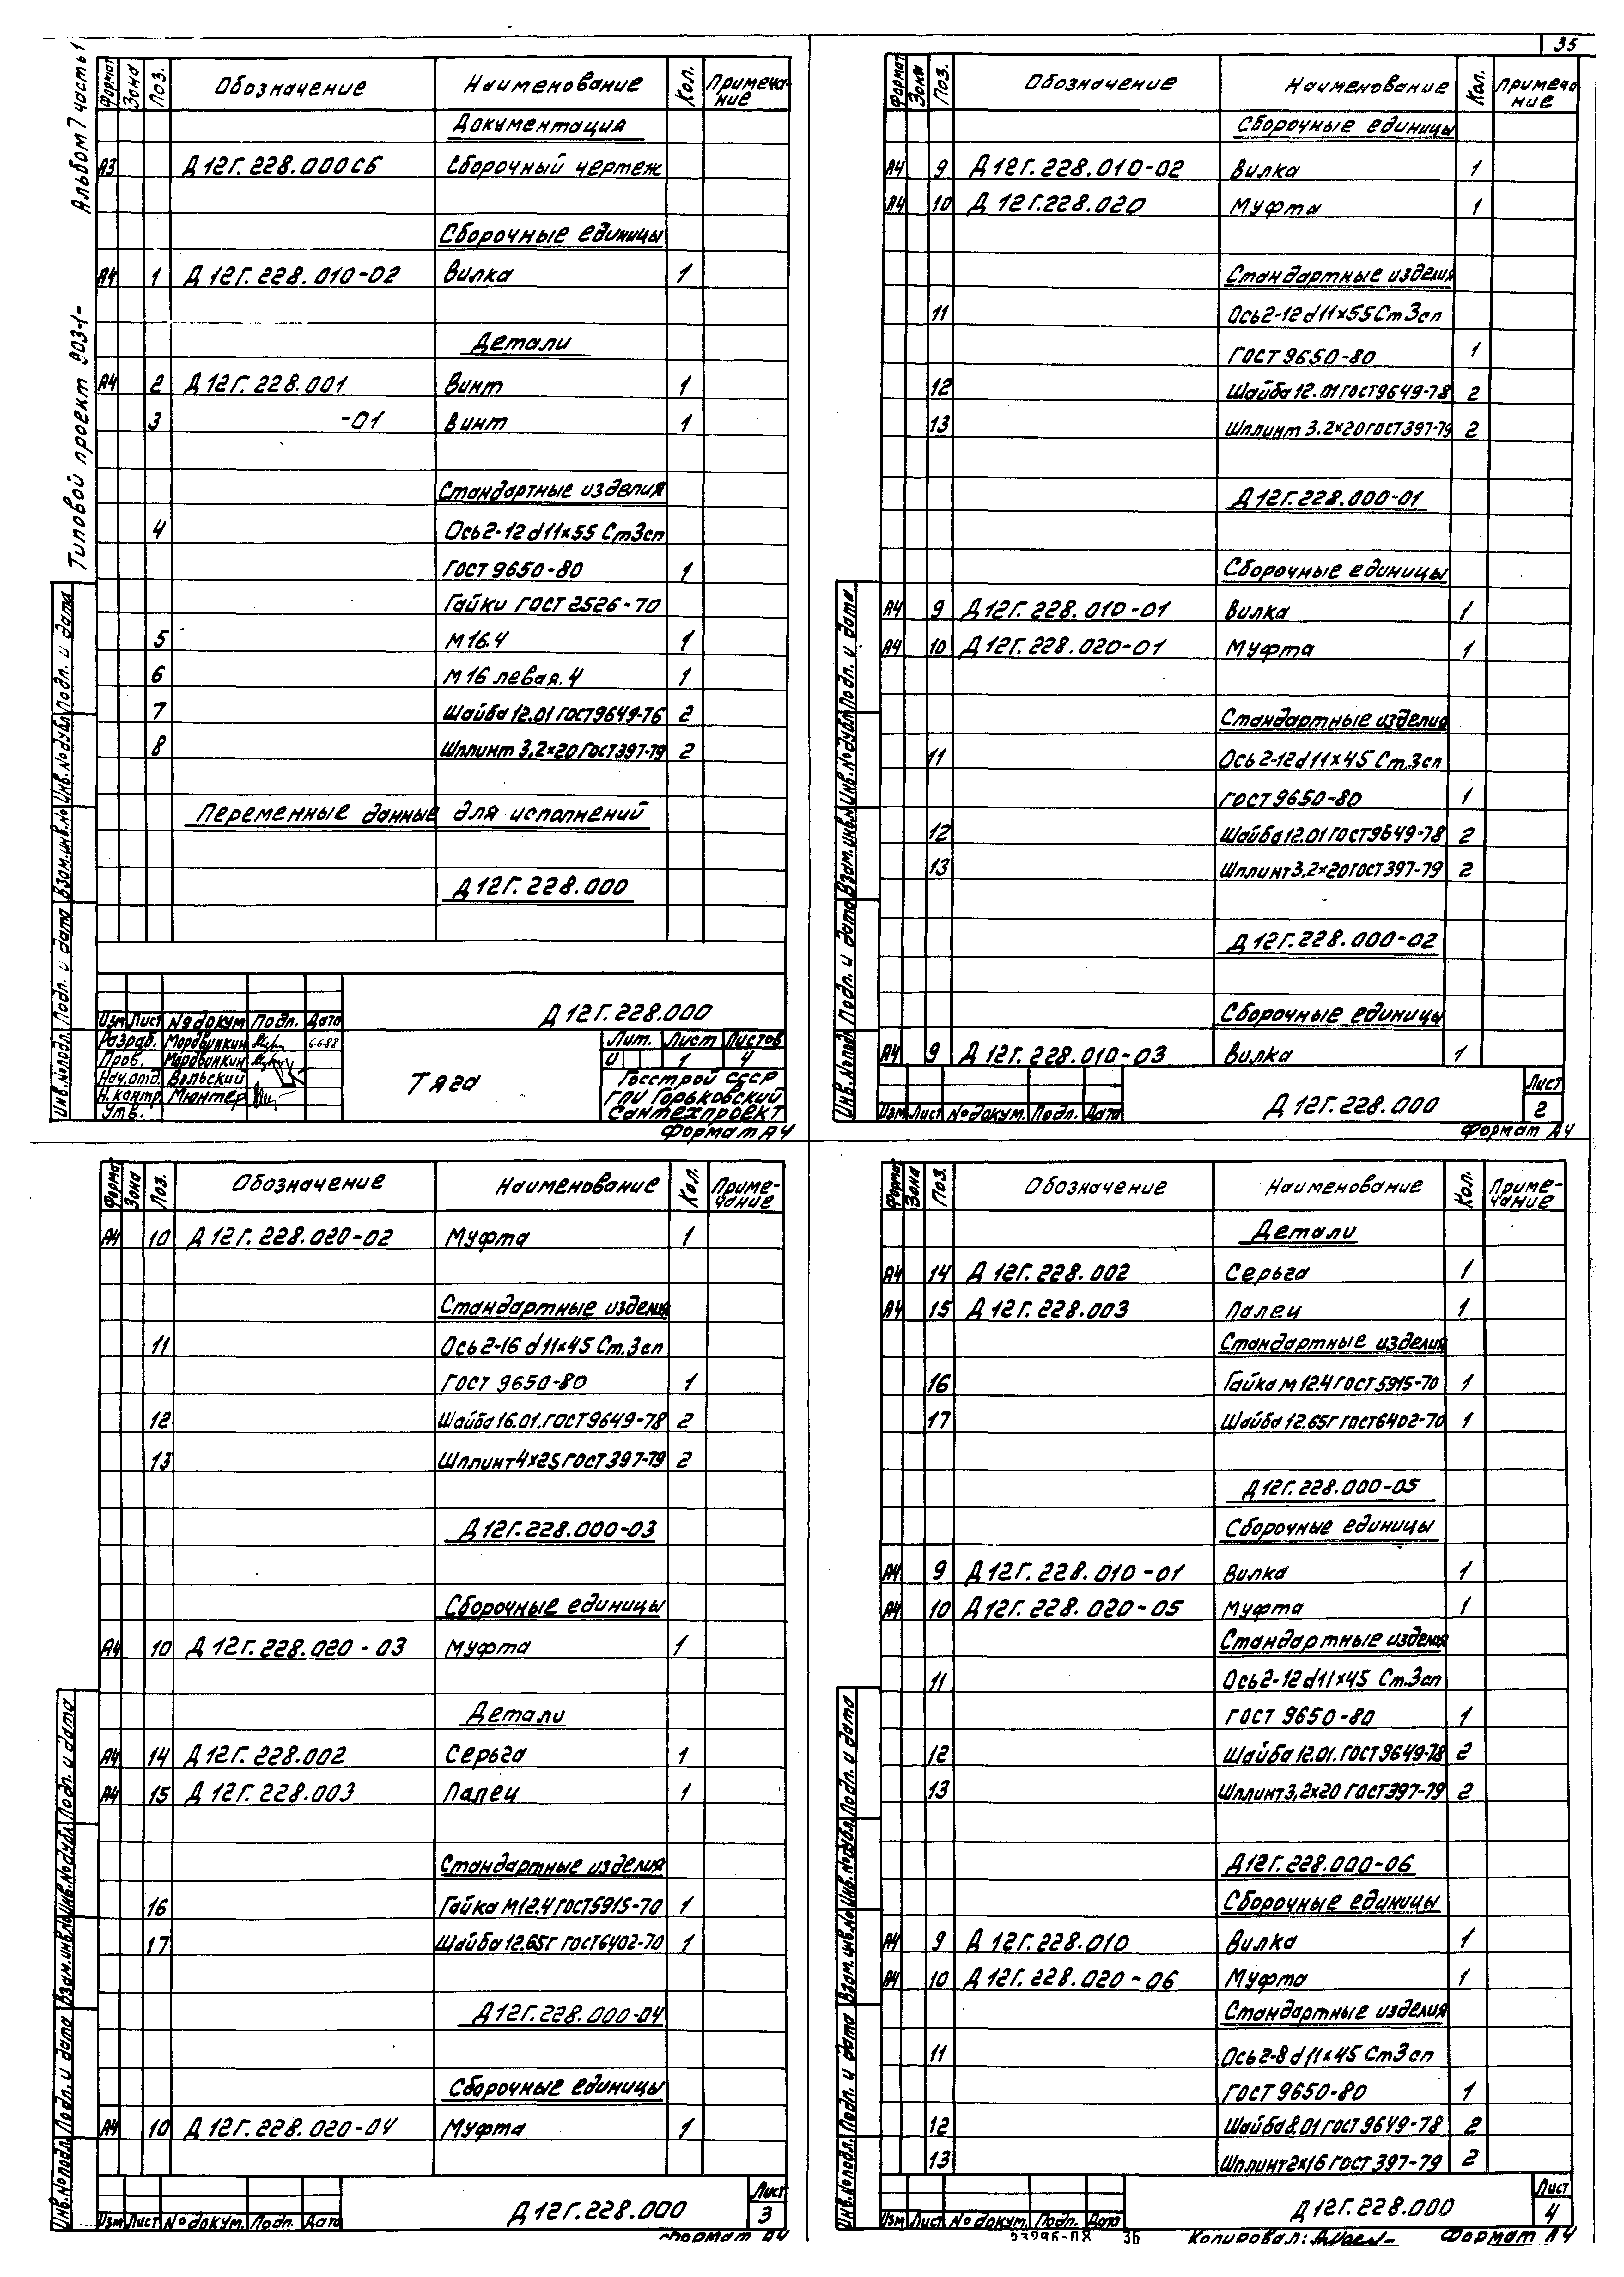 35
Альбом 7 часть 1
Типовой проект 903-1-
Формат Зона Поз. Обозначение Наименование Кол. Примеча-ние
Документация
А3 Д12Г.228.000СБ Сборочный чертеж
Сборочные единицы
А4 1 Д12Г.228.010-02 Вилка 1
Детали
А4 2 Д12Г.228.001 Винт 1
3 -01 Винт 1
Стандартные изделия
4 Ось 2-12d11×55 Ст3сп
ГОСТ 9650-80 1
Гайки ГОСТ 2526-70
5 М16.4 1
6 М16 левая.4 1
7 Шайба 12.01 ГОСТ 9649-76 2
8 Шплинт 3,2×20 ГОСТ 397-79 2
Переменные данные для исполнений
Д12Г.228.000
Инв.№подл. Подп. и дата Взам.инв.№ Инв.№дубл. Подп. и дата
Д12Г.228.000
Изм Лист №докум Подп. Дата
Разраб. Мордвинкин 6.6.88
Пров. Мордвинкин
Нач.отд. Вольский
Н.контр Мюнтер
Утв.
Тяга
Лит. Лист Листов
И 1 4
Госстрой СССР
ГПИ Горьковский
Сантехпроект
Формат А4
Формат Зона Поз. Обозначение Наименование Кол. Примеча-ние
Сборочные единицы
А4 9 Д12Г.228.010-02 Вилка 1
А4 10 Д12Г.228.020 Муфта 1
Стандартные изделия
11 Ось 2-12d11×55 Ст3сп
ГОСТ 9650-80 1
12 Шайба 12.01 ГОСТ 9649-78 2
13 Шплинт 3.2×20 ГОСТ 397-79 2
Д12Г.228.000-01
Сборочные единицы
А4 9 Д12Г.228.010-01 Вилка 1
А4 10 Д12Г.228.020-01 Муфта 1
Стандартные изделия
11 Ось 2-12d11×45 Ст.3сп
ГОСТ 9650-80 1
12 Шайба 12.01 ГОСТ 9649-78 2
13 Шплинт 3,2×20 ГОСТ 397-79 2
Д12Г.228.000-02
Сборочные единицы
А4 9 Д12Г.228.010-03 Вилка 1
Инв.№подл. Подп. и дата Взам.инв.№ Инв.№дубл. Подп. и дата
Изм Лист №докум. Подп. Дата
Д12Г.228.000
Лист
2
Формат А4
Формат Зона Поз. Обозначение Наименование Кол. Приме-чание
А4 10 Д12Г.228.020-02 Муфта 1
Стандартные изделия
11 Ось 2-16 d11×45 Ст.3сп
ГОСТ 9650-80 1
12 Шайба 16.01. ГОСТ 9649-78 2
13 Шплинт 4×25 ГОСТ 397-79 2
Д12Г.228.000-03
Сборочные единицы
А4 10 Д12Г.228.020-03 Муфта 1
Детали
А4 14 Д12Г.228.002 Серьга 1
А4 15 Д12Г.228.003 Палец 1
Стандартные изделия
16 Гайка М12.4 ГОСТ 5915-70 1
17 Шайба 12.65Г ГОСТ 6402-70 1
Д12Г.228.000-04
Сборочные единицы
А4 10 Д12Г.228.020-04 Муфта 1
Инв.№подл. Подп. и дата Взам.инв.№ Инв.№дубл. Подп. и дата
Изм Лист №докум. Подп. Дата
Д12Г.228.000
Лист
3
Формат А4
Формат Зона Поз. Обозначение Наименование Кол. Приме-чание
Детали
А4 14 Д12Г.228.002 Серьга 1
А4 15 Д12Г.228.003 Палец 1
Стандартные изделия
16 Гайка М12.4 ГОСТ 5915-70 1
17 Шайба 12.65Г ГОСТ 6402-70 1
Д12Г.228.000-05
Сборочные единицы
А4 9 Д12Г.228.010-01 Вилка 1
А4 10 Д12Г.228.020-05 Муфта 1
Стандартные изделия
11 Ось 2-12d11×45 Ст.3сп
ГОСТ 9650-80 1
12 Шайба 12.01. ГОСТ 9649-78 2
13 Шплинт 3,2×20 ГОСТ 397-79 2
Д12Г.228.000-06
Сборочные единицы
А4 9 Д12Г.228.010 Вилка 1
А4 10 Д12Г.228.020-06 Муфта 1
Стандартные изделия
11 Ось 2-8d11×45 Ст3сп
ГОСТ 9650-80 1
12 Шайба 8.01 ГОСТ 9649-78 2
13 Шплинт 2×16 ГОСТ 397-79 2
Инв.№подл. Подп. и дата Взам.инв.№ Инв.№дубл. Подп. и дата
Изм Лист №докум. Подп. Дата
Д12Г.228.000
Лист
4
23296-08 36 Копировал: Формат А4